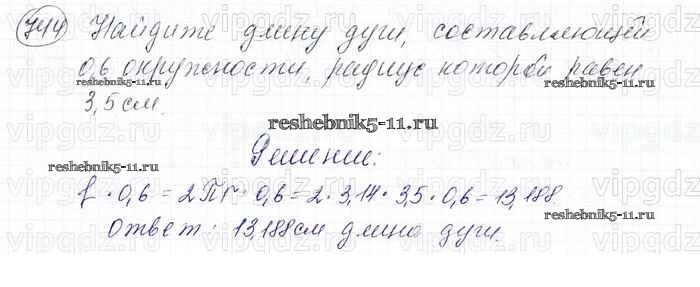 744 Найдите длину дуги, составляющей
0,6 окружности, радиус которой равен
3,5 см.
reshebnik5-11.ru
reshebnik5-11.ru
reshebnik5-11.ru
Решение:
reshebnik5-11.ru
ℓ · 0,6 = 2Пr · 0,6 = 2 · 3,14 · 3,5 · 0,6 = 13,188
reshebnik5-11.ru
ответ: 13,188см длина дуги.